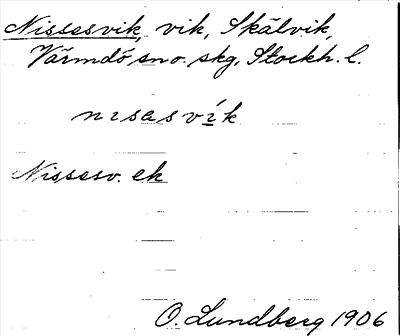 Nissesvik, vik, Skälvik,
Värmdö sno. skg, Stockh. l.
nısasvı́k
Nissesv. ek
O. Lundberg 1906